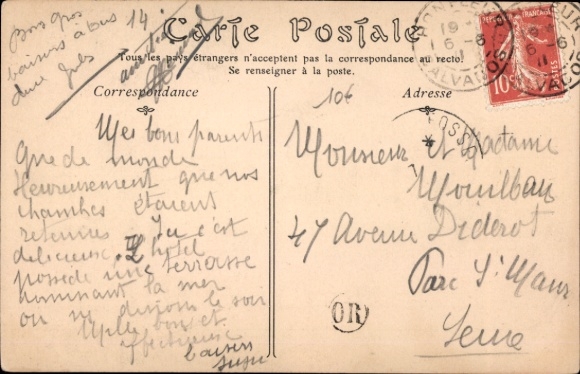 Bons gros
baisers à tous
deux Jules
14
Carte Postale
Tous les pays étrangers n'acceptent pas la correspondance au recto.
Se renseigner à la poste.
Correspondance
Adresse
10€
Mes bons parents
Que de monde
Heureusement que nos
chambres étaient
retenues
c'est
delicieux. L'hotel
possède une terrasse
dominant la mer
où
le soir
Mille bons et
affectueux
baisers
Monsieur et Madame
Mouilbau
47 Avenue Diderot
Parc St Maur
Seine
OR
10c
POSTES
CALVADOS